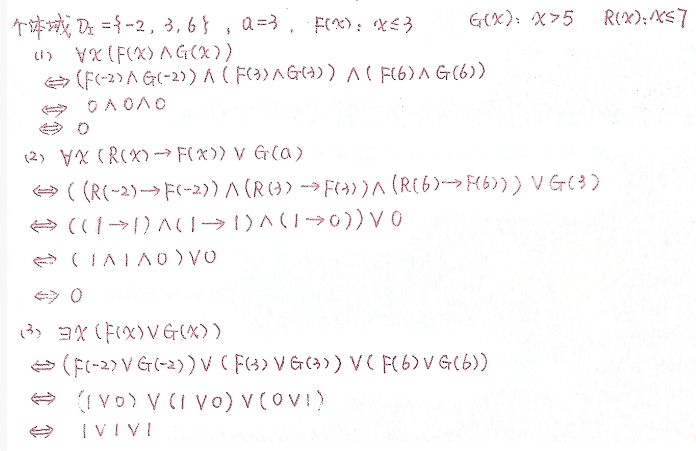 个体域 D_I = {-2, 3, 6}, a=3, F(x): x≤3 G(x): x>5 R(x): x≤7
(1) ∀x(F(x)∧G(x))
⇔ (F(-2)∧G(-2))∧(F(3)∧G(3))∧(F(6)∧G(6))
⇔ 0∧0∧0
⇔ 0
(2) ∀x(R(x)→F(x))∨G(a)
⇔ ((R(-2)→F(-2))∧(R(3)→F(3))∧(R(6)→F(6)))∨G(3)
⇔ ((1→1)∧(1→1)∧(1→0))∨0
⇔ (1∧1∧0)∨0
⇔ 0
(3) ∃x(F(x)∨G(x))
⇔ (F(-2)∨G(-2))∨(F(3)∨G(3))∨(F(6)∨G(6))
⇔ (1∨0)∨(1∨0)∨(0∨1)
⇔ 1∨1∨1